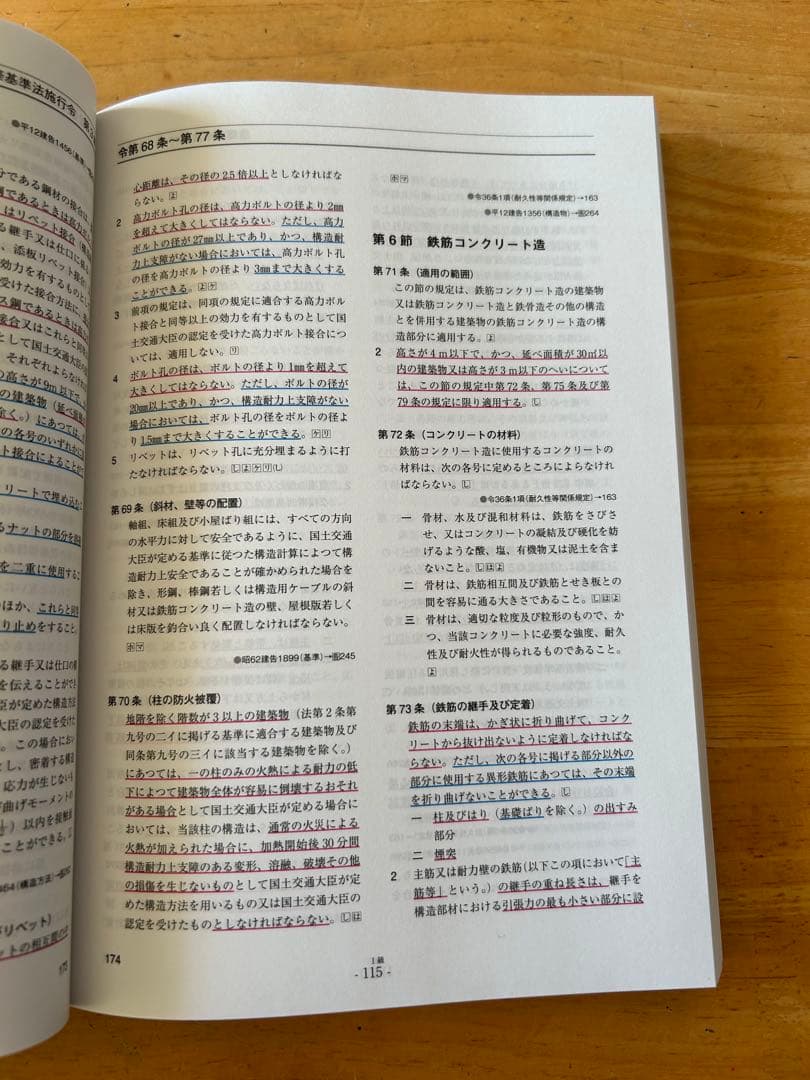 基準法施行令 第3
●平12建告1456(基準)
分である鋼材の接合は、
鋼であるときは高力
はリベット接合(構
る継手又は仕口に
、添板リベット接合
効力を有するものとして国
受けた接合方法に、
ス鋼であるときは高
接合又はこれらと同等
として国土交通大臣
、それぞれよらなけ
の高さが9m以下で、
の建築物(延べ面
除く。)にあつては、
の各号のいずれかに
ト接合によることがで
リートで埋め込む
るナットの部分を溶接
を二重に使用するこ
ほか、これらと同等
り止めをすること。
る継手又は仕口の構
を伝えることができ
臣が定めた構造方法
大臣の認定を受けた
。この場合におい
とし、密着する構造
応力が生じない
曲げモーメントの
)以内を接触面
ことができる。
464(構造方法)
がリベット)
ットの相互間の中
175
令第68条～第77条
心距離は、その径の2.5倍以上としなければな
らない。㋵
2 高力ボルト孔の径は、高力ボルトの径より2mm
を超えて大きくしてはならない。ただし、高力
ボルトの径が27mm以上であり、かつ、構造耐
力上支障がない場合においては、高力ボルト孔
の径を高力ボルトの径より3mmまで大きくする
ことができる。㋵㋘
3 前項の規定は、同項の規定に適合する高力ボ
ルト接合と同等以上の効力を有するものとして国
土交通大臣の認定を受けた高力ボルト接合につ
いては、適用しない。㋷
4 ボルト孔の径は、ボルトの径より1mmを超えて
大きくしてはならない。ただし、ボルトの径が
20mm以上であり、かつ、構造耐力上支障がない
場合においては、ボルト孔の径をボルトの径よ
り1.5mmまで大きくすることができる。㋘㋷
5 リベットは、リベット孔に充分埋まるように打
たなければならない。
第69条(斜材、壁等の配置)
軸組、床組及び小屋ばり組には、すべての方向
の水平力に対して安全であるように、国土交通
大臣が定める基準に従つた構造計算によつて構
造耐力上安全であることが確かめられた場合を
除き、形鋼、棒鋼若しくは構造用ケーブルの斜
材又は鉄筋コンクリート造の壁、屋根版若しく
は床版を釣合い良く配置しなければならない。
㋭㋮
●昭62建告1899(基準)→告245
第70条(柱の防火被覆)
地階を除く階数が3以上の建築物(法第2条第
九号の二イに掲げる基準に適合する建築物及び
同条第九号の三イに該当する建築物を除く。)
にあつては、一の柱のみの火熱による耐力の低
下によつて建築物全体が容易に倒壊するおそれ
がある場合として国土交通大臣が定める場合に
おいては、当該柱の構造は、通常の火災による
火熱が加えられた場合に、加熱開始後30分間
構造耐力上支障のある変形、溶融、破壊その他
の損傷を生じないものとして国土交通大臣が定
めた構造方法を用いるもの又は国土交通大臣の
認定を受けたものとしなければならない。
174
㋭㋮
●令36条1項(耐久性等関係規定)→163
●平12建告1356(構造物)→告264
第6節 鉄筋コンクリート造
第71条(適用の範囲)
この節の規定は、鉄筋コンクリート造の建築物
又は鉄筋コンクリート造と鉄骨造その他の構造
とを併用する建築物の鉄筋コンクリート造の構
造部分に適用する。㋵
2 高さが4m以下で、かつ、延べ面積が30㎡以
内の建築物又は高さが3m以下のへいについて
は、この節の規定中第72条、第75条及び第
79条の規定に限り適用する。
第72条(コンクリートの材料)
鉄筋コンクリート造に使用するコンクリートの
材料は、次の各号に定めるところによらなけれ
ばならない。
●令36条1項(耐久性等関係規定)→163
一 骨材、水及び混和材料は、鉄筋をさびさ
せ、又はコンクリートの凝結及び硬化を妨
げるような酸、塩、有機物又は泥土を含ま
ないこと。
二 骨材は、鉄筋相互間及び鉄筋とせき板との
間を容易に通る大きさであること。
三 骨材は、適切な粒度及び粒形のもので、か
つ、当該コンクリートに必要な強度、耐久
性及び耐火性が得られるものであること。
㋵
第73条(鉄筋の継手及び定着)
鉄筋の末端は、かぎ状に折り曲げて、コンク
リートから抜け出ないように定着しなければな
らない。ただし、次の各号に掲げる部分以外の
部分に使用する異形鉄筋にあつては、その末端
を折り曲げないことができる。
一 柱及びはり(基礎ばりを除く。)の出すみ
部分
二 煙突
2 主筋又は耐力壁の鉄筋(以下この項において「主
筋等」という。)の継手の重ね長さは、継手を
構造部材における引張力の最も小さい部分に設
1級
- 115 -